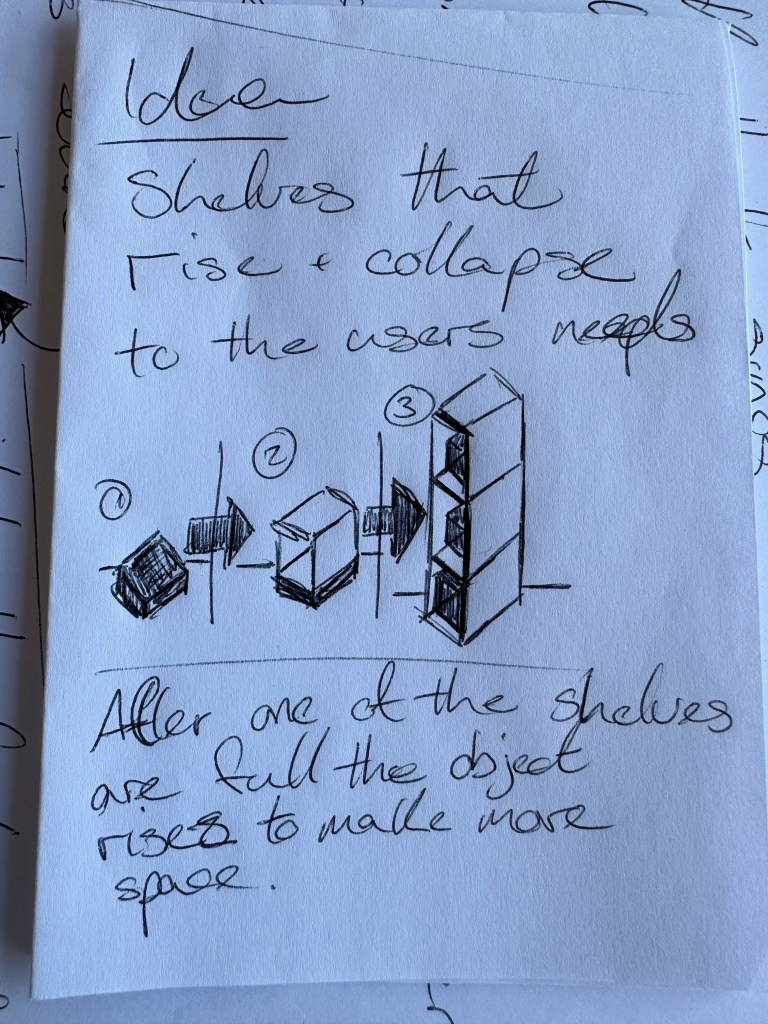 Idea
Shelves that
rise + collapse
to the users needs
1
2
3
After one of the shelves
are full the object
rises to make more
space.